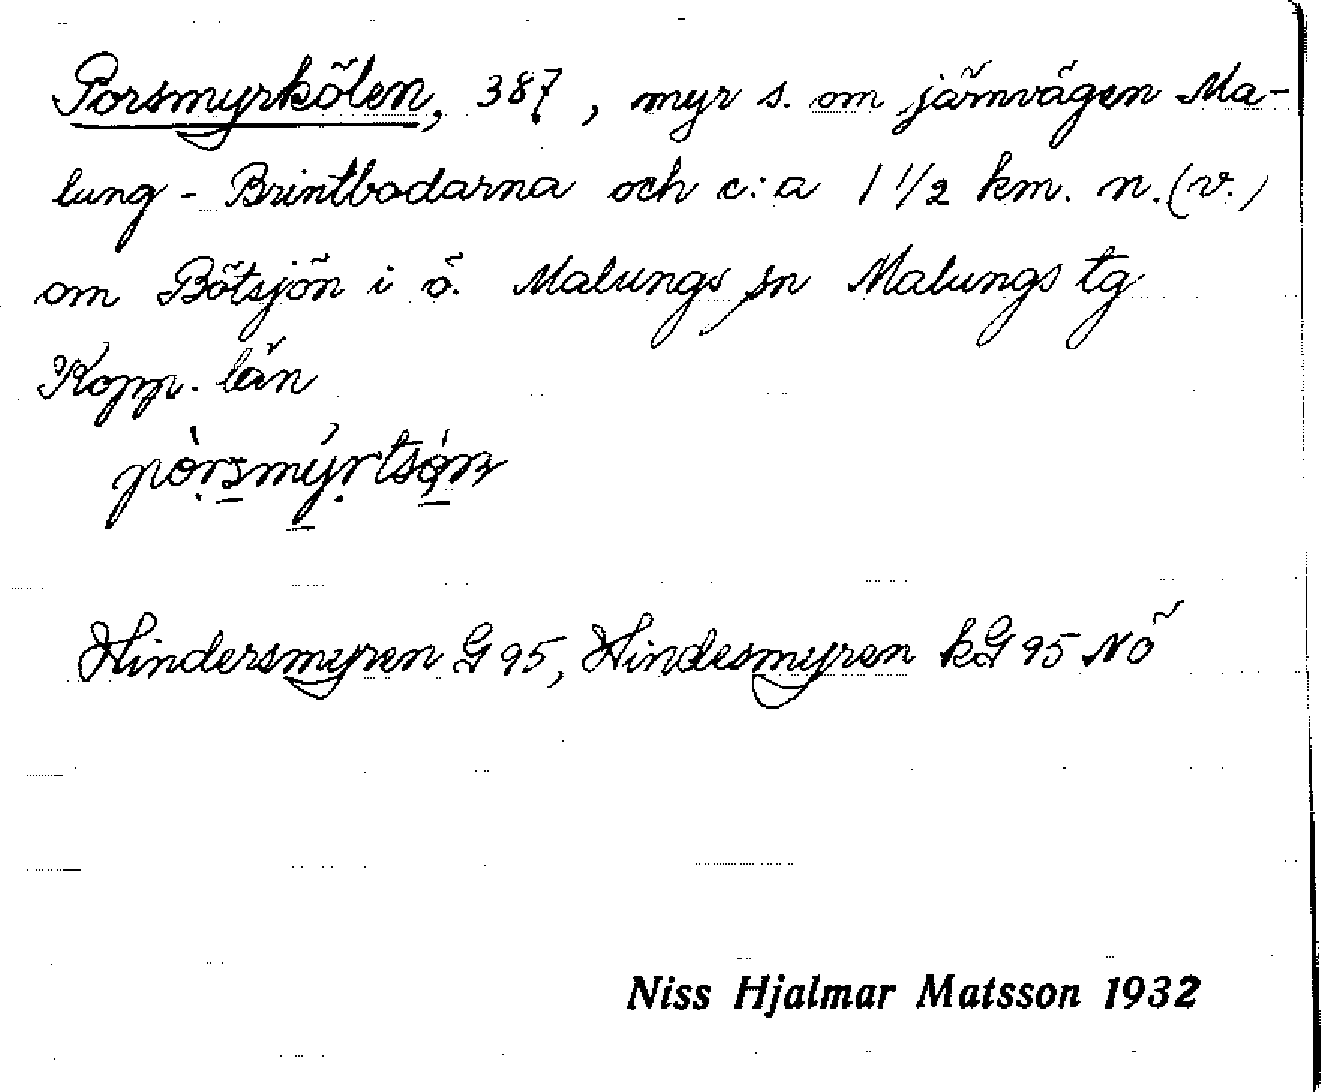 Porsmyrkölen, 387, myr s. om järnvägen Ma-
lung - Brintbodarna och c:a 1 1/2 km. n.(v.)
om Bötsjön i ö. Malungs sn Malungs tg
Kopp. län
Hindersmyren G 95, Hindesmyren kG 95 NÖ
Niss Hjalmar Matsson 1932